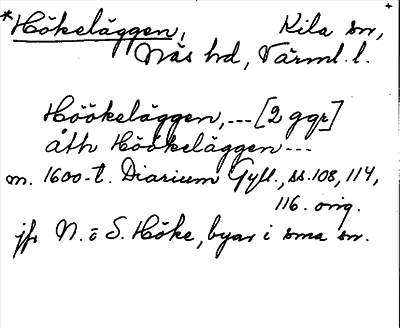 *Hökeläggen, Kila sn,
Näs hd, Värml. l.
Höökeläggen, --- [2 ggr]
åth Höökeläggen ---
m. 1600-t. Diarium Gyll., ss. 108, 114,
116. orig.
jfr N. o S. Höke, byar i sma sn.